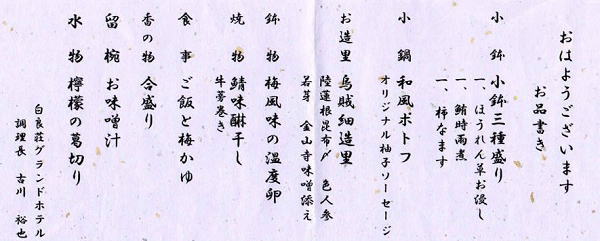 おはようございます
お品書き
小鉢 小鉢三種盛り
一、ほうれん草お浸し
一、鮪時雨煮
一、柿なます
小鍋 和風ポトフ
オリジナル柚子ソーセージ
お造里 烏賊細造里
陸蓮根昆布〆 色人参
若芽 金山寺味噌添え
鉢物 梅風味の温度卵
焼物 鯖味醂干し
牛蒡巻き
食事 ご飯と梅かゆ
香の物 合盛り
留椀 お味噌汁
水物 檸檬の葛切り
白良荘グランドホテル
調理長 古川 裕也